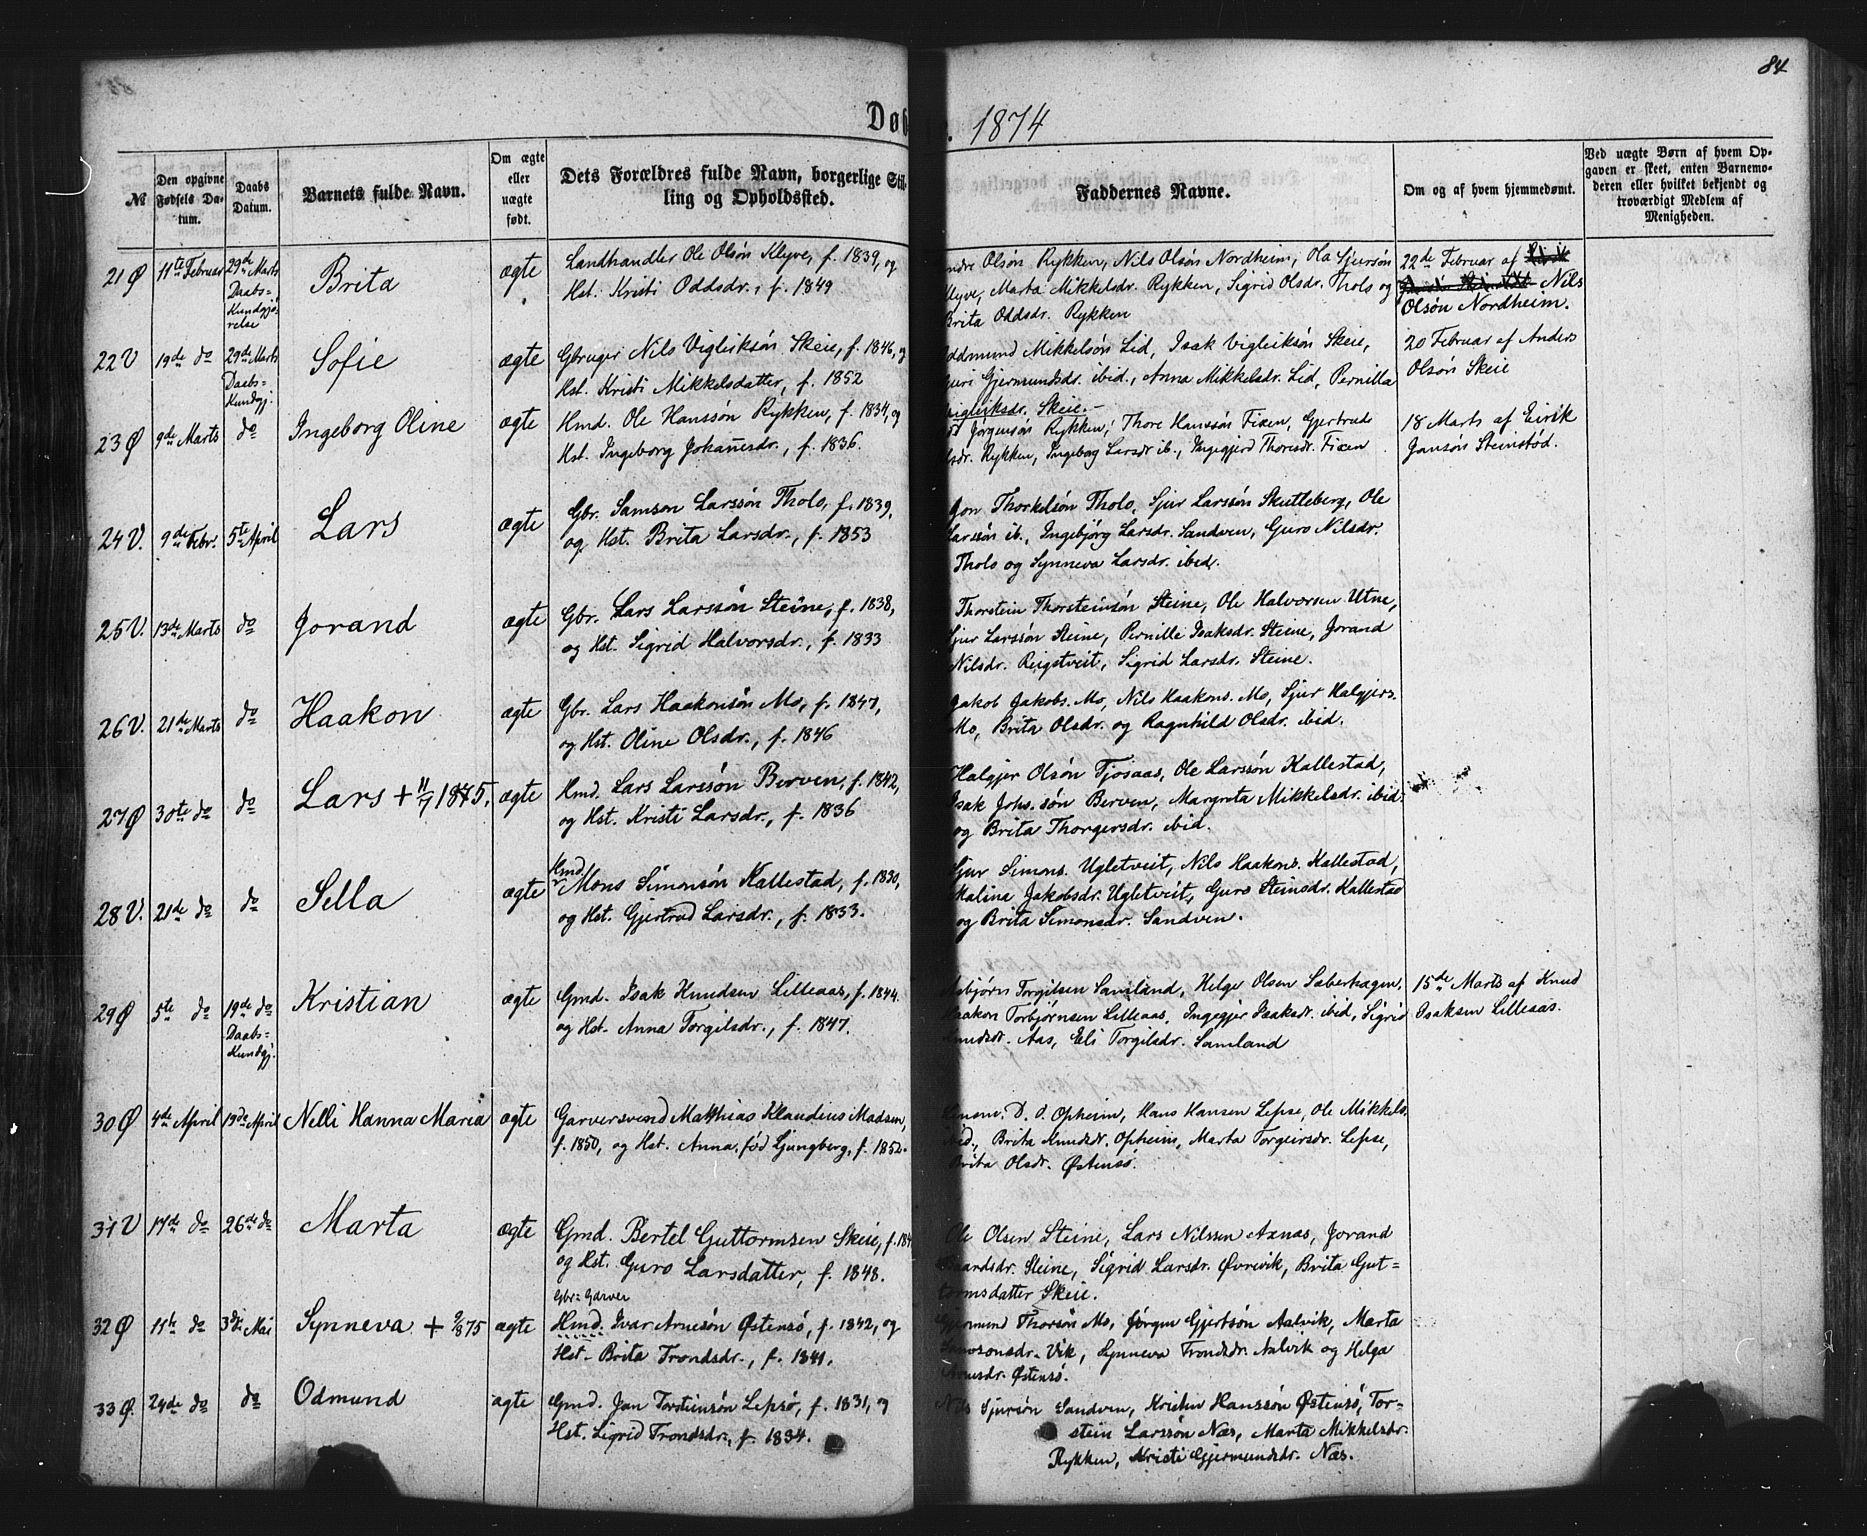 84
Døb
1874
№
Den opgivne Fødsels Datum.
Daabs Datum.
Barnets fulde Navn.
Om ægte eller uægte født.
Dets Forældres fulde Navn, borgerlige Stilling og Opholdssted.
Faddernes Navne.
Om og af hvem hjemmedøbt.
Ved uægte Børn af hvem Opgaven er skeet, enten Barnemoderen eller hvilket bekjendt og troværdigt Medlem af Menigheden.
21 Ø 11te Februar 29de Marts Daabs-Kundgjørelse Brita ægte
Landhandler Ole Olsøn Klyve, f. 1839, og
Hst. Kristi Oddsdr., f. 1849
Olsøn Rykken, Nils Olsøn Nordheim, Ola Sjursøn
Klyve, Marta Mikkelsdr. Rykken, Sigrid Olsdr. Tholo og
Brita Oddsdr. Rykken
22de Februar af
Nils
Olsøn Nordheim.
22 V 19de do 29de Marts Daabs-Kundgj. Sofie ægte
Gbruger Nils Vigleiksøn Skeie, f. 1846, og
Hst. Kristi Mikkelsdatter, f. 1852
Oddmund Mikkelsøn Lid, Isak Vigleiksøn Skeie,
Guri Gjermundsdr. ibid., Anna Mikkelsdr. Lid, Pernilla
Vigleiksdr. Skeie.-
20 Februar af Anders
Olsøn Skeie
23 Ø 9de Marts do Ingeborg Oline ægte
Hmd. Ole Hanssøn Rykken, f. 1834, og
Hst. Ingeborg Johannesdr., f. 1836.
Jørgensøn Rykken, Thore Hanssøn Fixen, Gjertrude
Rykken, Ingeborg Larsdr ib., Ingegjerd Thoresdr. Fixen
18 Marts af Eirik
Jonsøn Steinstød.
24 V. 9de Febr. 5te April Lars ægte
Gbr. Samson Larssøn Tholo, f. 1839,
og Hst. Brita Larsdr., f. 1853
Jon Thorkelsøn Tholo, Sjur Larssøn Skutleberg, Ole
Larssøn ib., Ingebjørg Larsdr. Sandven, Guro Nilsdr.
Tholo og Synneva Larsdr. ibid.
25 V. 13de Marts do Jorand ægte
Gbr. Lars Larssøn Steine, f. 1838,
og Hst. Sigrid Halvorsdr., f. 1833
Thorstein Thorsteinsøn Steine, Ole Halvorsen Utne,
Sjur Larssøn Steine, Pernille Isaksdr. Steine, Jorand
Nilsdr. Reigstveit, Sigrid Larsdr. Steine.
26 V. 21de Marts do Haakon ægte
Gbr. Lars Haakonsøn Mo, f. 1847,
og Hst. Oline Olsdr., f. 1846
Jakob Jakobs. Mo, Nils Haakons. Mo, Sjur Halgjers.
Mo, Brita Olsdr. og Ragnhild Olsdr. ibid.
27 Ø 30te do do Lars + 11/7 1875. ægte
Hmd. Lars Larssøn Berven, f. 1842,
og Hst. Kristi Larsdr., f. 1836
Halgjer Olsøn Tjosaas, Ole Larssøn Kallestad,
Isak Johs.søn Berven, Margreta Mikkelsdr. ibid.
og Brita Thorgersdr. ibid.
28 V. 21de do do Sella ægte
Hmd. Mons Simonsøn Kallestad, f. 1830,
og Hst. Gjertrud Larsdr., f. 1833.
Sjur Simons. Ugletveit, Nils Haakons. Kallestad,
Malina Jakobsdr. Ugletveit, Guro Steinsdr. Kallestad
og Brita Simonsdr. Sandven.
29 Ø 5te do 19de do Daabs-Kundgj. Kristian ægte
Gmd. Isak Knudsen Lilleaas, f. 1844.
og Hst. Anna Torgilsdr., f. 1847.
Asbjørn Torgilsen Samland, Helge Olsen Sæberhagen,
Haakon Torbjørnsen Lilleaas, Ingegjer Isaksdr. ibid, Sigrid
Knudsdr. Aas, Eli Torgilsdr. Samland
15de Marts af Knud
Isaksen Lilleaas.
30 Ø 4de April 19de April Nelli Hanna Maria ægte
Garversvend Matthias Klaudius Madsen,
f. 1850, og Hst. Anna, fød Ljungberg, f. 1852.
D. O. Opheim, Hans Hansen Lepsø, Ole Mikkels.
ibid., Brita Knudsdr. Opheim, Marta Torgeirsdr. Lepsø,
Brita Olsdr. Østensø.
31 V 17de do 26de do Marta ægte
Gmd. Bertel Guttormsen Skeie, f. 184
og Hst. Guro Larsdatter, f. 1848.
Ole Olsen Steine, Lars Nilssen Axnas, Jorand
Steine, Sigrid Larsdr. Øvrevik, Brita Gut-
tormsdatter Skeie.
32 Ø 11te do 3die Mai Synneva + 9/8 75 ægte
Gbr. Garver
Hmd. Ivar Arnesøn Østensø, f. 1842, og
Hst. Brita Trondsdr., f. 1841.
Gjermund Thorsøn Mo, Jørgen Gjertsøn Aalvik, Marta
Samsonsdr. Vik, Synneva Trondsdr. Aalvik og Helga
Arnesdr. Østensø.
33 Ø. 24de do do Odmund ægte
Gmd. Jon Torsteinsøn Lepsø, f. 1831, og
Hst. Sigrid Trondsdr., f. 1834.
Nils Sjursøn Sandven, Kristen Hanssøn Østensø, Tor-
stein Larssøn Næs, Marta Mikkelsdr.
Rykken, Kristi Gjermundsdr. Næs.